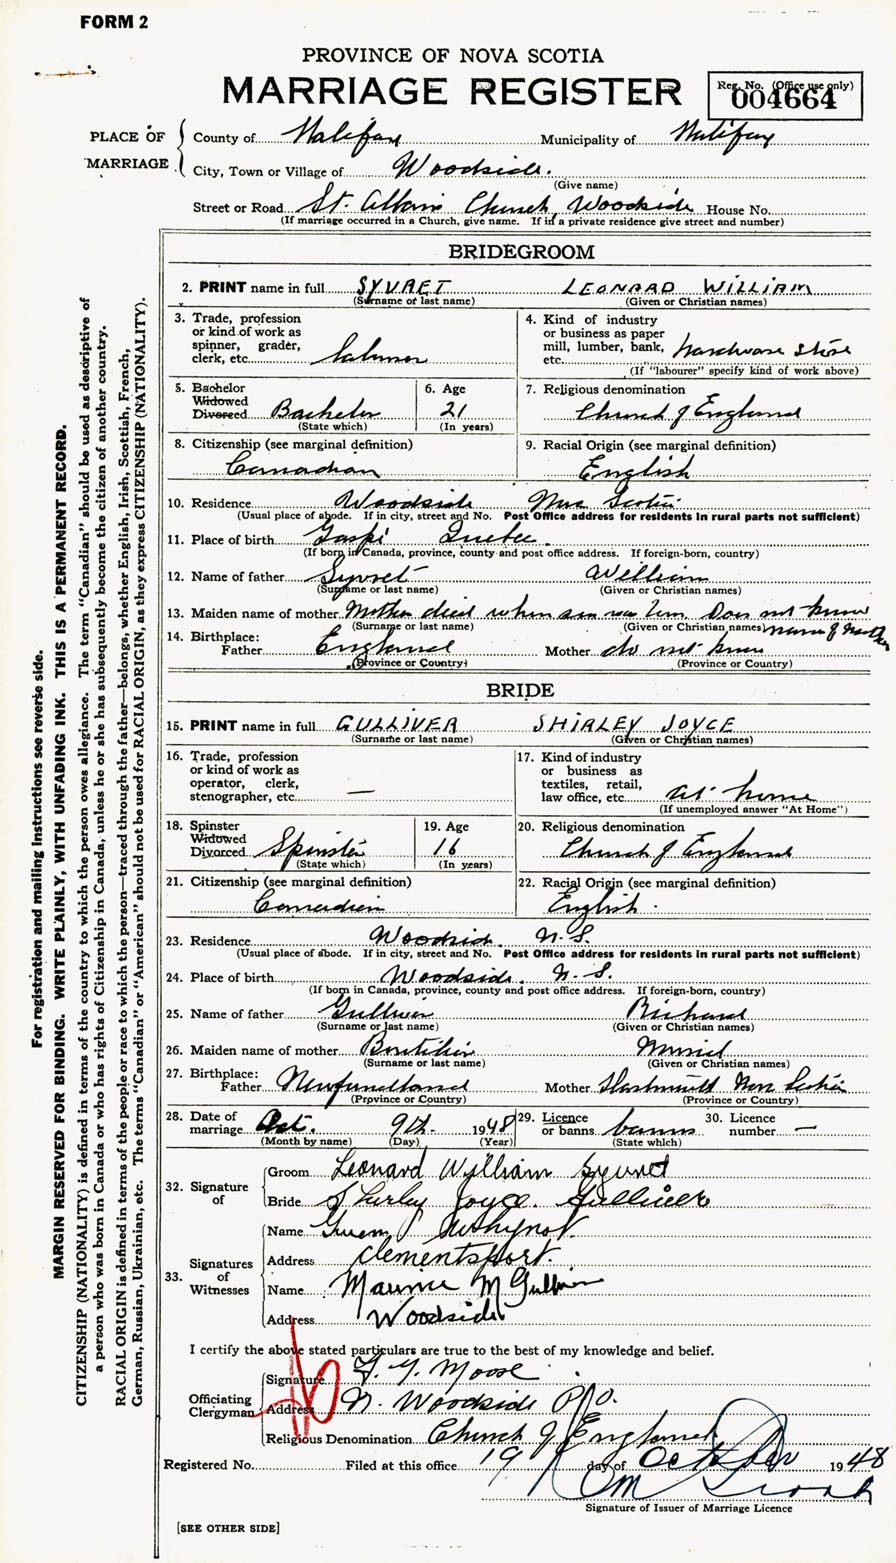 FORM 2
PROVINCE OF NOVA SCOTIA
MARRIAGE REGISTER
Reg. No. (Office use only)
004664
PLACE OF MARRIAGE
County of Halifax Municipality of Halifax
City, Town or Village of Woodside.
(Give name)
Street or Road St. Albans Church, Woodside House No.
(If marriage occurred in a Church, give name. If in a private residence give street and number)
BRIDEGROOM
2. PRINT name in full SYVRET LEONARD WILLIAM
(Surname or last name) (Given or Christian names)
3. Trade, profession or kind of work as spinner, grader, clerk, etc. Labourer
4. Kind of industry or business as paper mill, lumber, bank, etc. hardware store
(If "labourer" specify kind of work above)
5. Bachelor Widowed Divorced Bachelor
(State which)
6. Age 21
(In years)
7. Religious denomination Church of England
8. Citizenship (see marginal definition) Canadian
9. Racial Origin (see marginal definition) English
10. Residence Woodside Nova Scotia
(Usual place of abode. If in city, street and No. Post Office address for residents in rural parts not sufficient)
11. Place of birth Gaspi Quebec
(If born in Canada, province, county and post office address. If foreign-born, country)
12. Name of father Syvret William
(Surname or last name) (Given or Christian names)
13. Maiden name of mother Mother died when son was born Does not know name of mother
(Surname or last name) (Given or Christian names)
14. Birthplace:
Father England Mother do not know
(Province or Country) (Province or Country)
BRIDE
15. PRINT name in full GULLIVER SHIRLEY JOYCE
(Surname or last name) (Given or Christian names)
16. Trade, profession or kind of work as operator, clerk, stenographer, etc. —
17. Kind of industry or business as textiles, retail, law office, etc. at home
(If unemployed answer "At Home")
18. Spinster Widowed Divorced Spinster
(State which)
19. Age 16
(In years)
20. Religious denomination Church of England
21. Citizenship (see marginal definition) Canadian
22. Racial Origin (see marginal definition) English.
23. Residence Woodside. N.S.
(Usual place of abode. If in city, street and No. Post Office address for residents in rural parts not sufficient)
24. Place of birth Woodside. N.S.
(If born in Canada, province, county and post office address. If foreign-born, country)
25. Name of father Gulliver Richard
(Surname or last name) (Given or Christian names)
26. Maiden name of mother Boutilier Muriel
(Surname or last name) (Given or Christian names)
27. Birthplace:
Father Newfoundland Mother Nova Scotia
(Province or Country) (Province or Country)
28. Date of marriage Oct. 9th. 1948
(Month by name) (Day) (Year)
29. Licence or banns banns
(State which)
30. Licence number —
32. Signature of
Groom Leonard William Syvret
Bride Shirley Joyce. Gulliver
33. Signatures of Witnesses
Name
Address Clementsport.
Name Maurice M Gulliver
Address Woodside
I certify the above stated particulars are true to the best of my knowledge and belief.
Officiating Clergyman
Signature F. Y. Moose
Address N. Woodside P.O.
Religious Denomination Church of England
Registered No. Filed at this office 19 day of October 1948
Signature of Issuer of Marriage Licence
[SEE OTHER SIDE]
For registration and mailing instructions see reverse side.
MARGIN RESERVED FOR BINDING. WRITE PLAINLY, WITH UNFADING INK. THIS IS A PERMANENT RECORD.
CITIZENSHIP (NATIONALITY) is defined in terms of the country to which the person owes allegiance. The term "Canadian" should be used as descriptive of
a person who was born in Canada or who has rights of Citizenship in Canada, unless he or she has subsequently become the citizen of another country.
RACIAL ORIGIN is defined in terms of the people or race to which the person—traced through the father—belongs, whether English, Irish, Scottish, French,
German, Russian, Ukrainian, etc. The terms "Canadian" or "American" should not be used for RACIAL ORIGIN, as they express CITIZENSHIP (NATIONALITY).